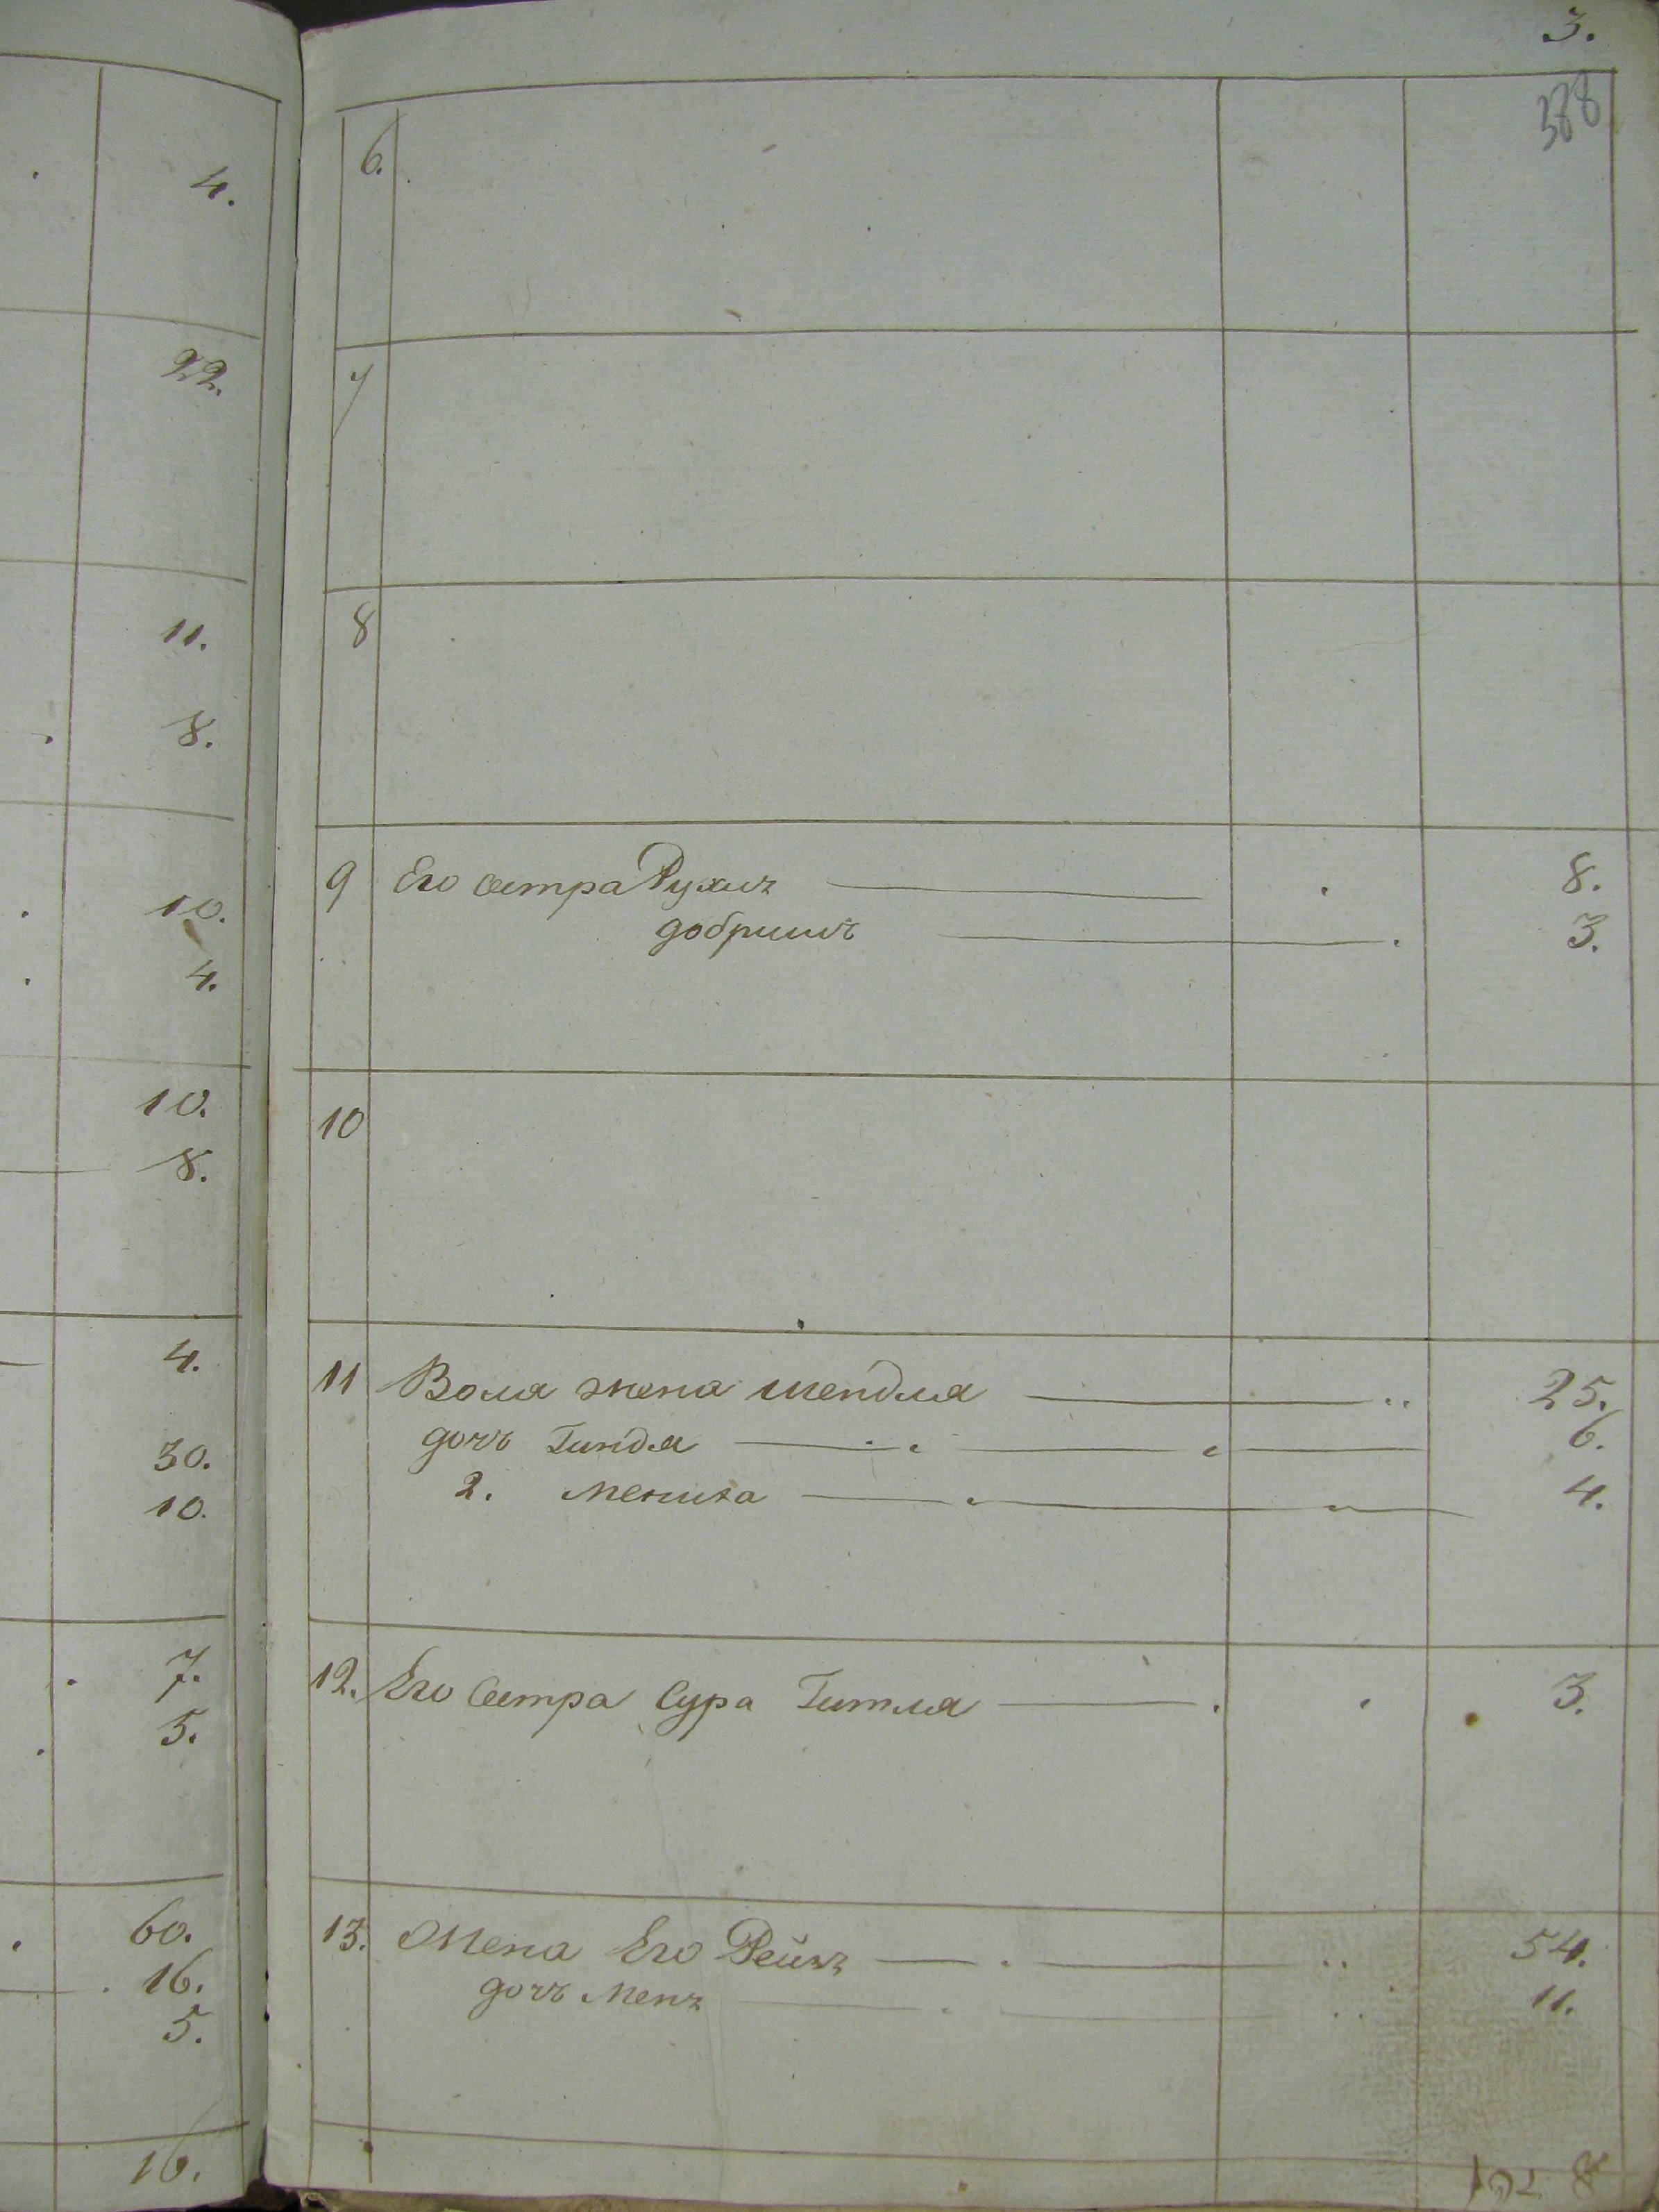 3.
388
4.
22.
11.
8.
10.
4.
10.
8.
4.
30.
10.
7.
5.
60.
16.
5.
16.
6.
7
8
9 Его сестра Рухль 8.
добришъ 3.
10
11 Волия жена Шендля 25.
дочь Гиндля 6.
2. Мениха 4.
12. Его Сестра Сура Гитля 3.
13. Жена Его Рейзъ 54.
дочь Менъ 11.